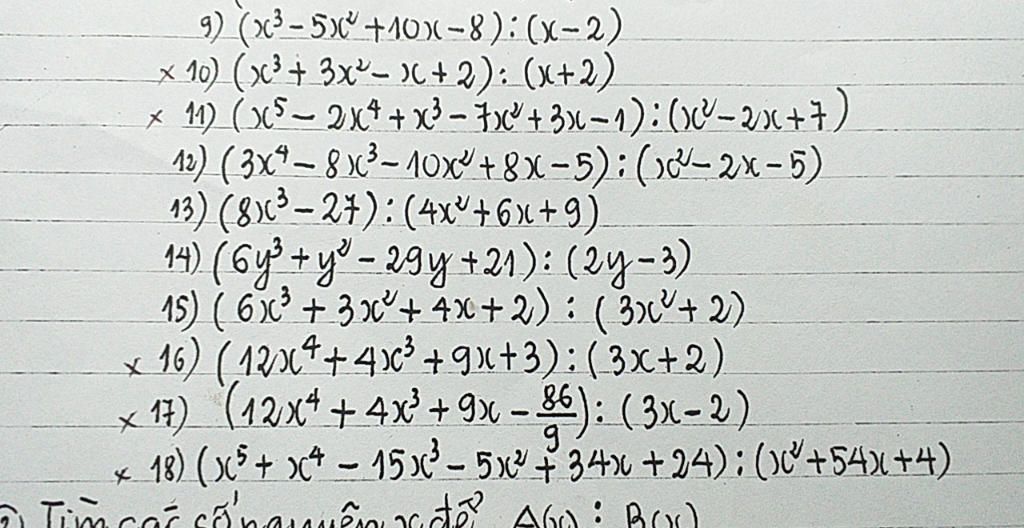 9) (x³ - 5x² + 10x - 8) : (x - 2)
× 10) (x³ + 3x² - x + 2) : (x + 2)
× 11) (x⁵ - 2x⁴ + x³ - 7x² + 3x - 1) : (x² - 2x + 7)
12) (3x⁴ - 8x³ - 10x² + 8x - 5) : (x² - 2x - 5)
13) (8x³ - 27) : (4x² + 6x + 9)
14) (6y³ + y² - 29y + 21) : (2y - 3)
15) (6x³ + 3x² + 4x + 2) : (3x² + 2)
× 16) (12x⁴ + 4x³ + 9x + 3) : (3x + 2)
× 17) (12x⁴ + 4x³ + 9x - 86/9) : (3x - 2)
× 18) (x⁵ + x⁴ - 15x³ - 5x² + 34x + 24) : (x² + 54x + 4)
2) Tìm các số nguyên x để A(x) ⋮ B(x)